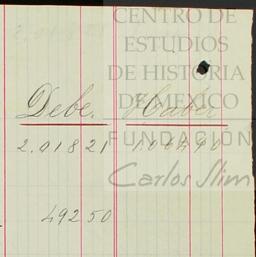 CENTRO DE
ESTUDIOS
DE HISTORIA
DE MEXICO
Debe. Haber
FUNDACIÓN
2.018 21
Carlos Slim
492 50